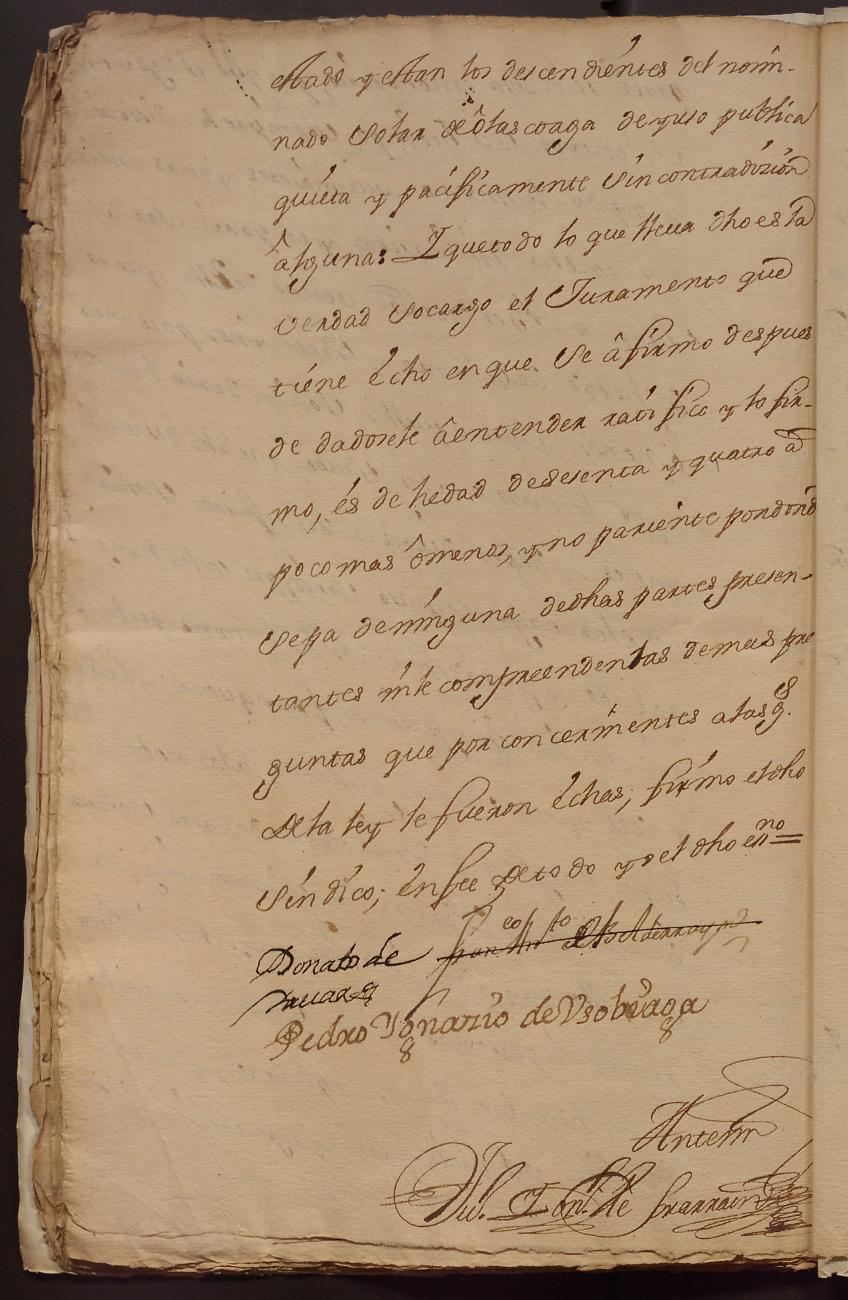 estado y estan los descendientes del nomi-
nado Solar de ôlascoaga de yuso publica
quieta y pacificamente Sin contradizion
âlguna: Y que todo lo que lleva dho es la
verdad Socargo el Juramento que
tiene écho en que Se âfirmo despues
de dadosele âentender ratifico y lo fir-
mo, és de hedad de sesenta y quatro a
poco mas ômenos, y no pariente pordond
Sepa deninguna dedhas partes presen-
tantes nile compreenden las demas pre
guntas que por concernientes alas g.es
de la ley le fueron échas, firmo el dho
Sindico; én fee de todo yo el dho essno=
Donato de
Pedro Ygnazio de Vsobiaga
Antemi